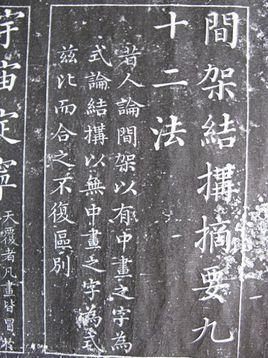 間架結搆摘要九
十二法
若人論間架以有中畫之字為
式論結搆以無中畫之字為式
兹比而合之不復區別
宇宙定寧
天覆者凡畫皆冒於